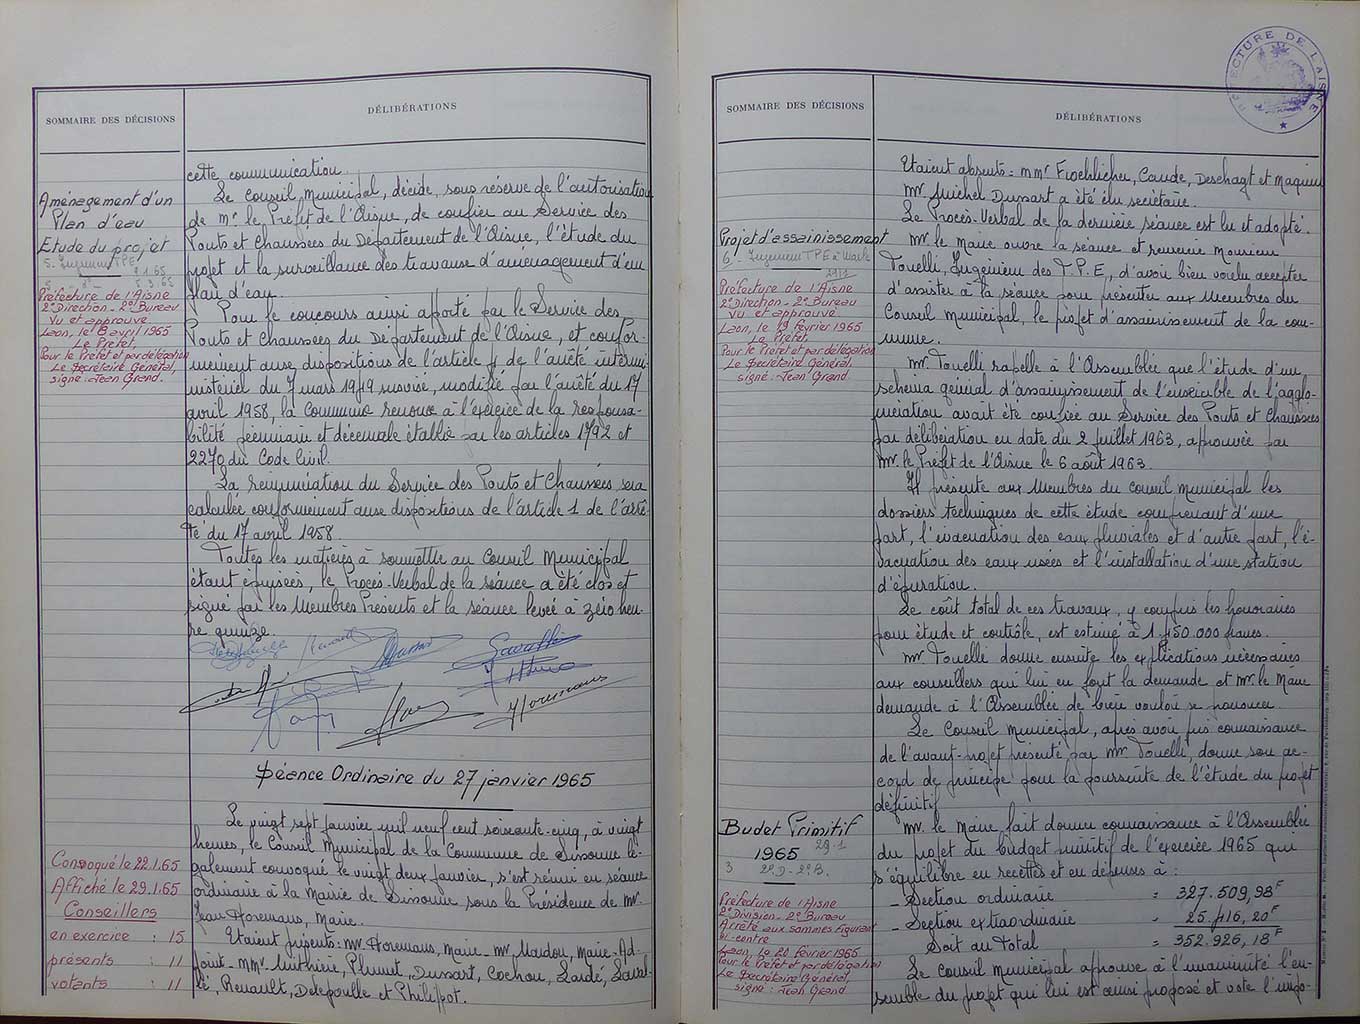 SOMMAIRE DES DÉCISIONS
DÉLIBÉRATIONS
Aménagement d'un
Plan d'eau
Etude du projet
5. Ingénieur TPE
9.1.65
5.3.65
Préfecture de l'Aisne
2e Direction - 2e Bureau
Vu et approuvé
Laon, le 8 avril 1965
Le Préfet,
Pour le Préfet et par délégation
Le Secrétaire Général,
signé : Jean Grand.
cette communication.
Le Conseil Municipal, décide, sous réserve de l'autorisation
de Mr. le Préfet de l'Aisne, de confier au Service des
Ponts et Chaussées du Département de l'Aisne, l'étude du
projet et la surveillance des travaux d'aménagement d'un
plan d'eau.
Pour le concours ainsi apporté par le Service des
Ponts et Chaussées du Département de l'Aisne, et confor-
mément aux dispositions de l'article 4 de l'arrêté intermi-
nistériel du 7 mars 1949 susvisé, modifié par l'arrêté du 17
avril 1958, la Commune renonce à l'exercice de la responsa-
bilité pécuniaire et décennale établie par les articles 1792 et
2270 du Code Civil.
La rémunération du Service des Ponts et Chaussées sera
calculée conformément aux dispositions de l'article 1 de l'arrê-
té du 17 avril 1958.
Toutes les matières à soumettre au Conseil Municipal
étant épuisées, le Procès-Verbal de la séance a été clos et
signé par les Membres Présents et la séance levée à zéro heu-
re quinze.
Horemans
Séance Ordinaire du 27 janvier 1965
Convoqué le 22.1.65
Affiché le 29.1.65
Conseillers
en exercice : 15
présents : 11
votants : 11
Le vingt sept janvier mil neuf cent soixante-cinq, à vingt
heures, le Conseil Municipal de la Commune de Sissonne lé-
galement convoqué le vingt deux janvier, s'est réuni en séance
ordinaire à la Mairie de Sissonne sous la Présidence de Mr.
Jean Horemans, Maire.
Etaient présents : Mr. Horemans, Maire - Mr. Mardou, Maire-Ad-
joint - MMr. Plumet, Dussart, Cochou, Lardé, Laval-
lé, Renault, Delepoulle et Philipot.
SOMMAIRE DES DÉCISIONS
DÉLIBÉRATIONS
PRÉFECTURE DE L'AISNE
Etaient absents : MMr Froehlicher, Caude, Deschagt et Maquin
Mr. Michel Dussart a été élu secrétaire.
Le Procès-Verbal de la dernière séance est lu et adopté.
Projet d'assainissement
6 - Ingénieur TPE à Marle
29/1
Préfecture de l'Aisne
2e Direction - 2e Bureau
Vu et approuvé
Laon, le 19 février 1965
Le Préfet,
Pour le Préfet et par délégation
Le Secrétaire Général,
signé : Jean Grand.
Mr. le Maire ouvre la séance et remercie Monsieur
Touelli, Ingénieur des T.P.E, d'avoir bien voulu accepter
d'assister à la séance pour présenter aux Membres du
Conseil Municipal, le projet d'assainissement de la com-
mune.
Mr. Touelli rapelle à l'Assemblée que l'étude d'un
schéma général d'assainissement de l'ensemble de l'agglo-
mération avait été confiée au Service des Ponts et Chaussées
par délibération en date du 2 juillet 1963, approuvée par
Mr. le Préfet de l'Aisne le 6 août 1963.
Il présente aux Membres du Conseil Municipal les
dossiers techniques de cette étude comprenant d'une
part, l'évacuation des eaux pluviales et d'autre part, l'é-
vacuation des eaux usées et l'installation d'une station
d'épuration.
Le coût total de ces travaux, y compris les honoraires
pour étude et contrôle, est estimé à 1.450.000 francs.
Mr. Touelli donne ensuite les explications nécessaires
aux conseillers qui lui en font la demande et Mr. le Maire
demande à l'Assemblée de bien vouloir se prononcer.
Le Conseil Municipal, après avoir pris connaissance
de l'avant-projet présenté par Mr. Touelli, donne son ac-
cord de principe pour la poursuite de l'étude du projet
définitif.
Budet Primitif
1965
29.1
3 2e D - 2e B.
Préfecture de l'Aisne
2e Division - 2e Bureau
Arrêté aux sommes figurant
ci-contre
Laon, le 20 février 1965
Pour le Préfet et par délégation
Le Secrétaire Général,
signé : Jean Grand
Mr. le Maire fait donner connaissance à l'Assemblée
du projet du budget primitif de l'exercice 1965 qui
s'équilibre en recettes et en dépenses à :
- Section ordinaire = 327.509,98 F
- Section extraordinaire - 25.416,20 F
Soit au Total = 352.926,18 F
Le Conseil Municipal approuve à l'unanimité l'en-
semble du projet qui lui est ainsi proposé et vote l'impo-